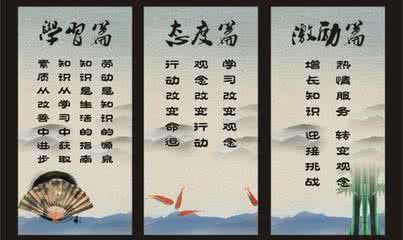 學習篇
劳动是知识的源泉
知识是生活的指南
知识从学习中获取
素质从改善中进步
态度篇
学习改变观念
观念改变行动
行动改变命运
激励篇
热情服务 转变观念
增长知识 迎接挑战